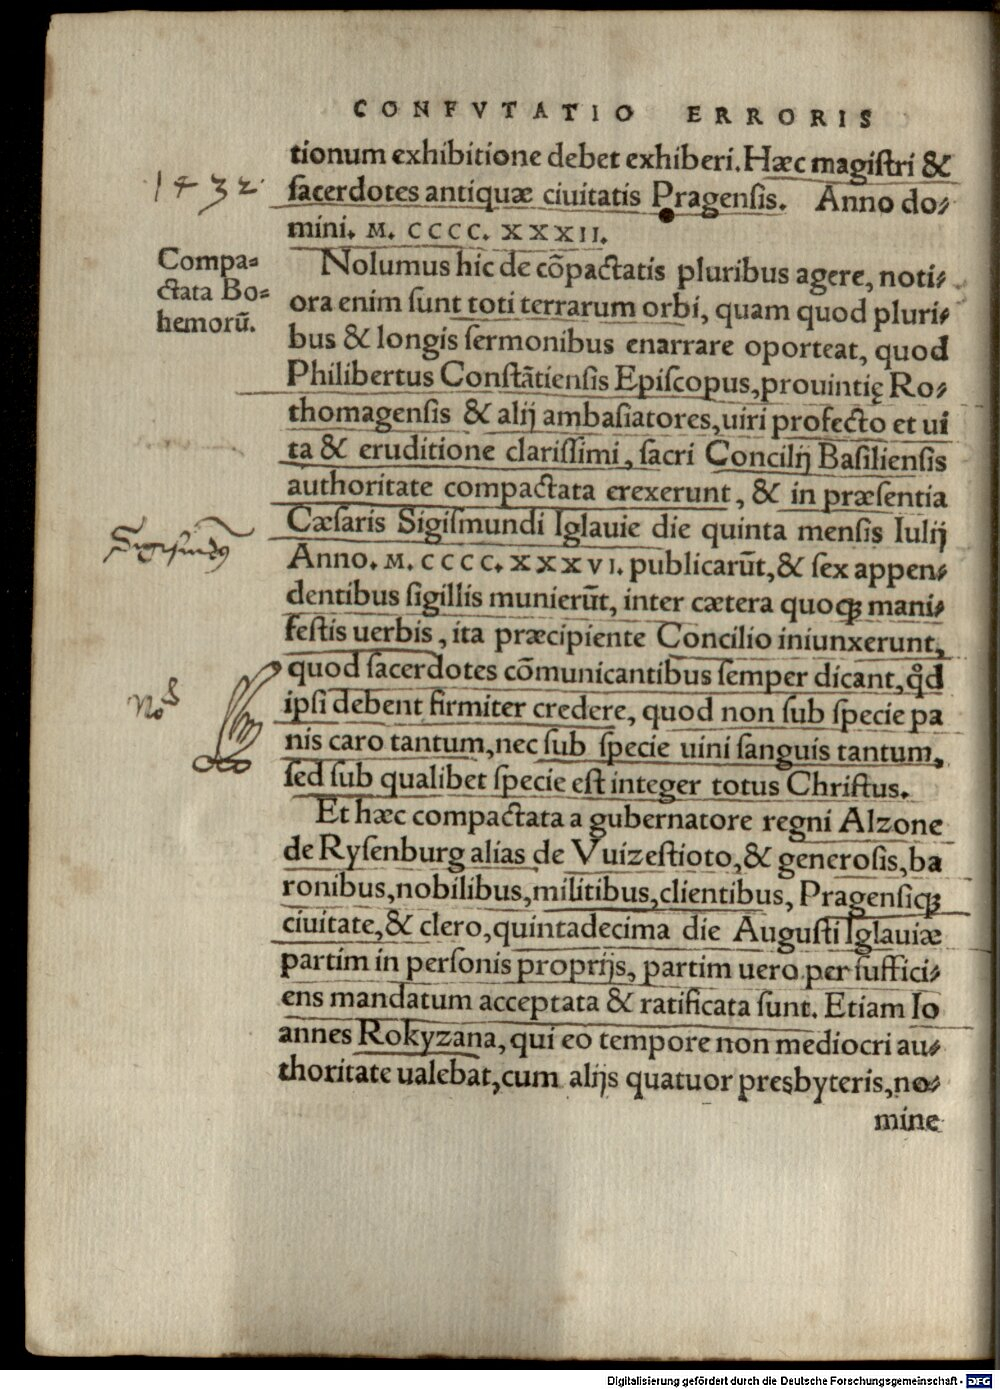 CONFVTATIO ERRORIS
tionum exhibitione debet exhiberi. Hæc magiſtri &
ſacerdotes antiquæ ciuitatis Pragenſis. Anno do⸗
mini. M. CCCC. XXXII.
1432
Nolumus hic de cõpactatis pluribus agere, noti⸗
Compa⸗
ctata Bo⸗
hemorũ.
ora enim ſunt toti terrarum orbi, quam quod pluri⸗
bus & longis ſermonibus enarrare oporteat, quod
Philibertus Conſtãtienſis Epiſcopus, prouintię Ro⸗
thomagenſis & alij ambaſiatores, uiri profecto et ui
ta & eruditione clariſſimi, ſacri Concilij Baſilienſis
authoritate compactata erexerunt, & in præſentia
Cæſaris Sigiſmundi Iglauie die quinta menſis Iulij
Sigiſmũdꝰ
Anno. M. CCCC. XXXVI. publicarũt, & ſex appen⸗
dentibus ſigillis munierũt, inter cætera quoqꝫ mani⸗
feſtis uerbis, ita præcipiente Concilio iniunxerunt,
quod ſacerdotes cõmunicantibus ſemper dicant, qd̊
ipſi debent firmiter credere, quod non ſub ſpecie pa
nis caro tantum, nec ſub ſpecie uini ſanguis tantum,
ſed ſub qualibet ſpecie eſt integer totus Chriſtus.
Et hæc compactata a gubernatore regni Alzone
de Ryſenburg alias de Vuizeſtioto, & generoſis, ba
ronibus, nobilibus, militibus, clientibus, Pragenſiqꝫ
ciuitate, & clero, quintadecima die Auguſti Iglauiæ
partim in perſonis proprijs, partim uero per ſuffici⸗
ens mandatum acceptata & ratificata ſunt. Etiam Io
annes Rokyzana, qui eo tempore non mediocri au⸗
thoritate ualebat, cum alijs quatuor presbyteris, no⸗
mine
Digitalisierung gefördert durch die Deutsche Forschungsgemeinschaft - DFG